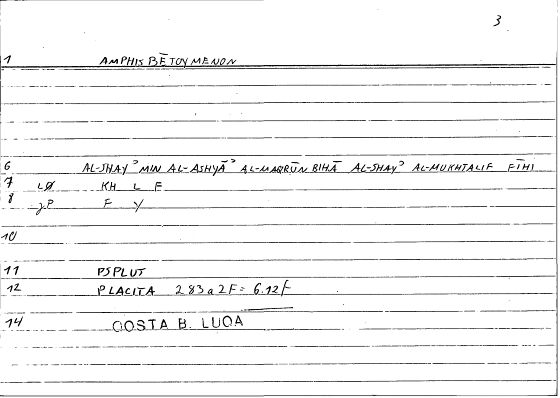 3
1 AMPHISBĒTOYMENON
6 AL-SHAYʾ MIN AL-ASHYĀʾ AL-MAQRŪN BIHĀ AL-SHAYʾ AL-MUKHTALIF FĪHI
7 LØ KH L F
8 JP F Y
10
11 PSPLUT
12 PLACITA 283a2F = 6.12f
14 QOSTA B. LUQA